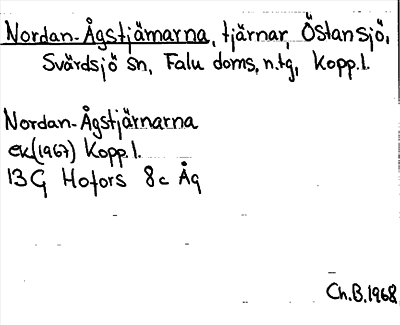 Nordan-Ågstjärnarna, tjärnar, Östansjö,
Svärdsjö sn, Falu doms. n.tg, Kopp.l.
Nordan-Ågstjärnarna
ek(1967) Kopp.l.
13G Hofors 8c Åg
Ch.B.1968